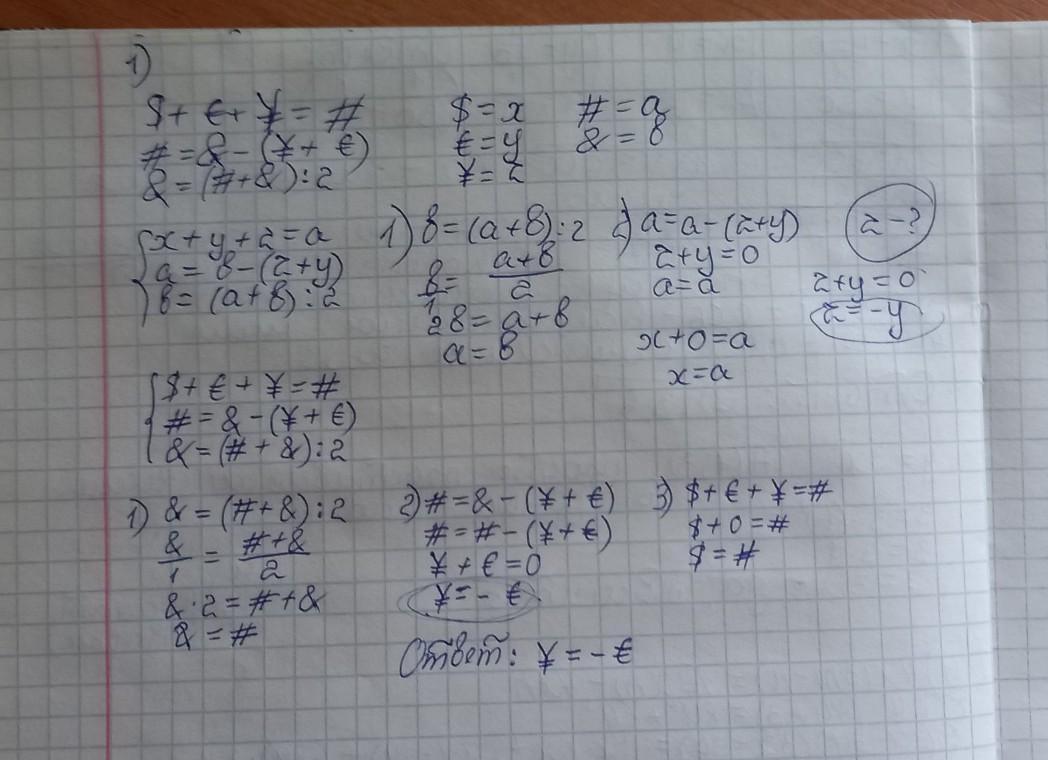 1)
$ + € + ¥ = #
# = & - (¥ + €)
& = (# + &) : 2
$ = x
€ = y
¥ = z
# = a
& = b
{x + y + z = a
a = b - (z + y)
b = (a + b) : 2
1) b = (a + b) : 2
b/1 = (a + b)/2
2b = a + b
a = b
2) a = a - (z + y)
z + y = 0
a = a
x + 0 = a
x = a
z - ?
z + y = 0
z = - y
{$ + € + ¥ = #
# = & - (¥ + €)
& = (# + &) : 2
1) & = (# + &) : 2
&/1 = (# + &)/2
& · 2 = # + &
& = #
2) # = & - (¥ + €)
# = # - (¥ + €)
¥ + € = 0
¥ = - €
3) $ + € + ¥ = #
$ + 0 = #
$ = #
Ответ: ¥ = - €